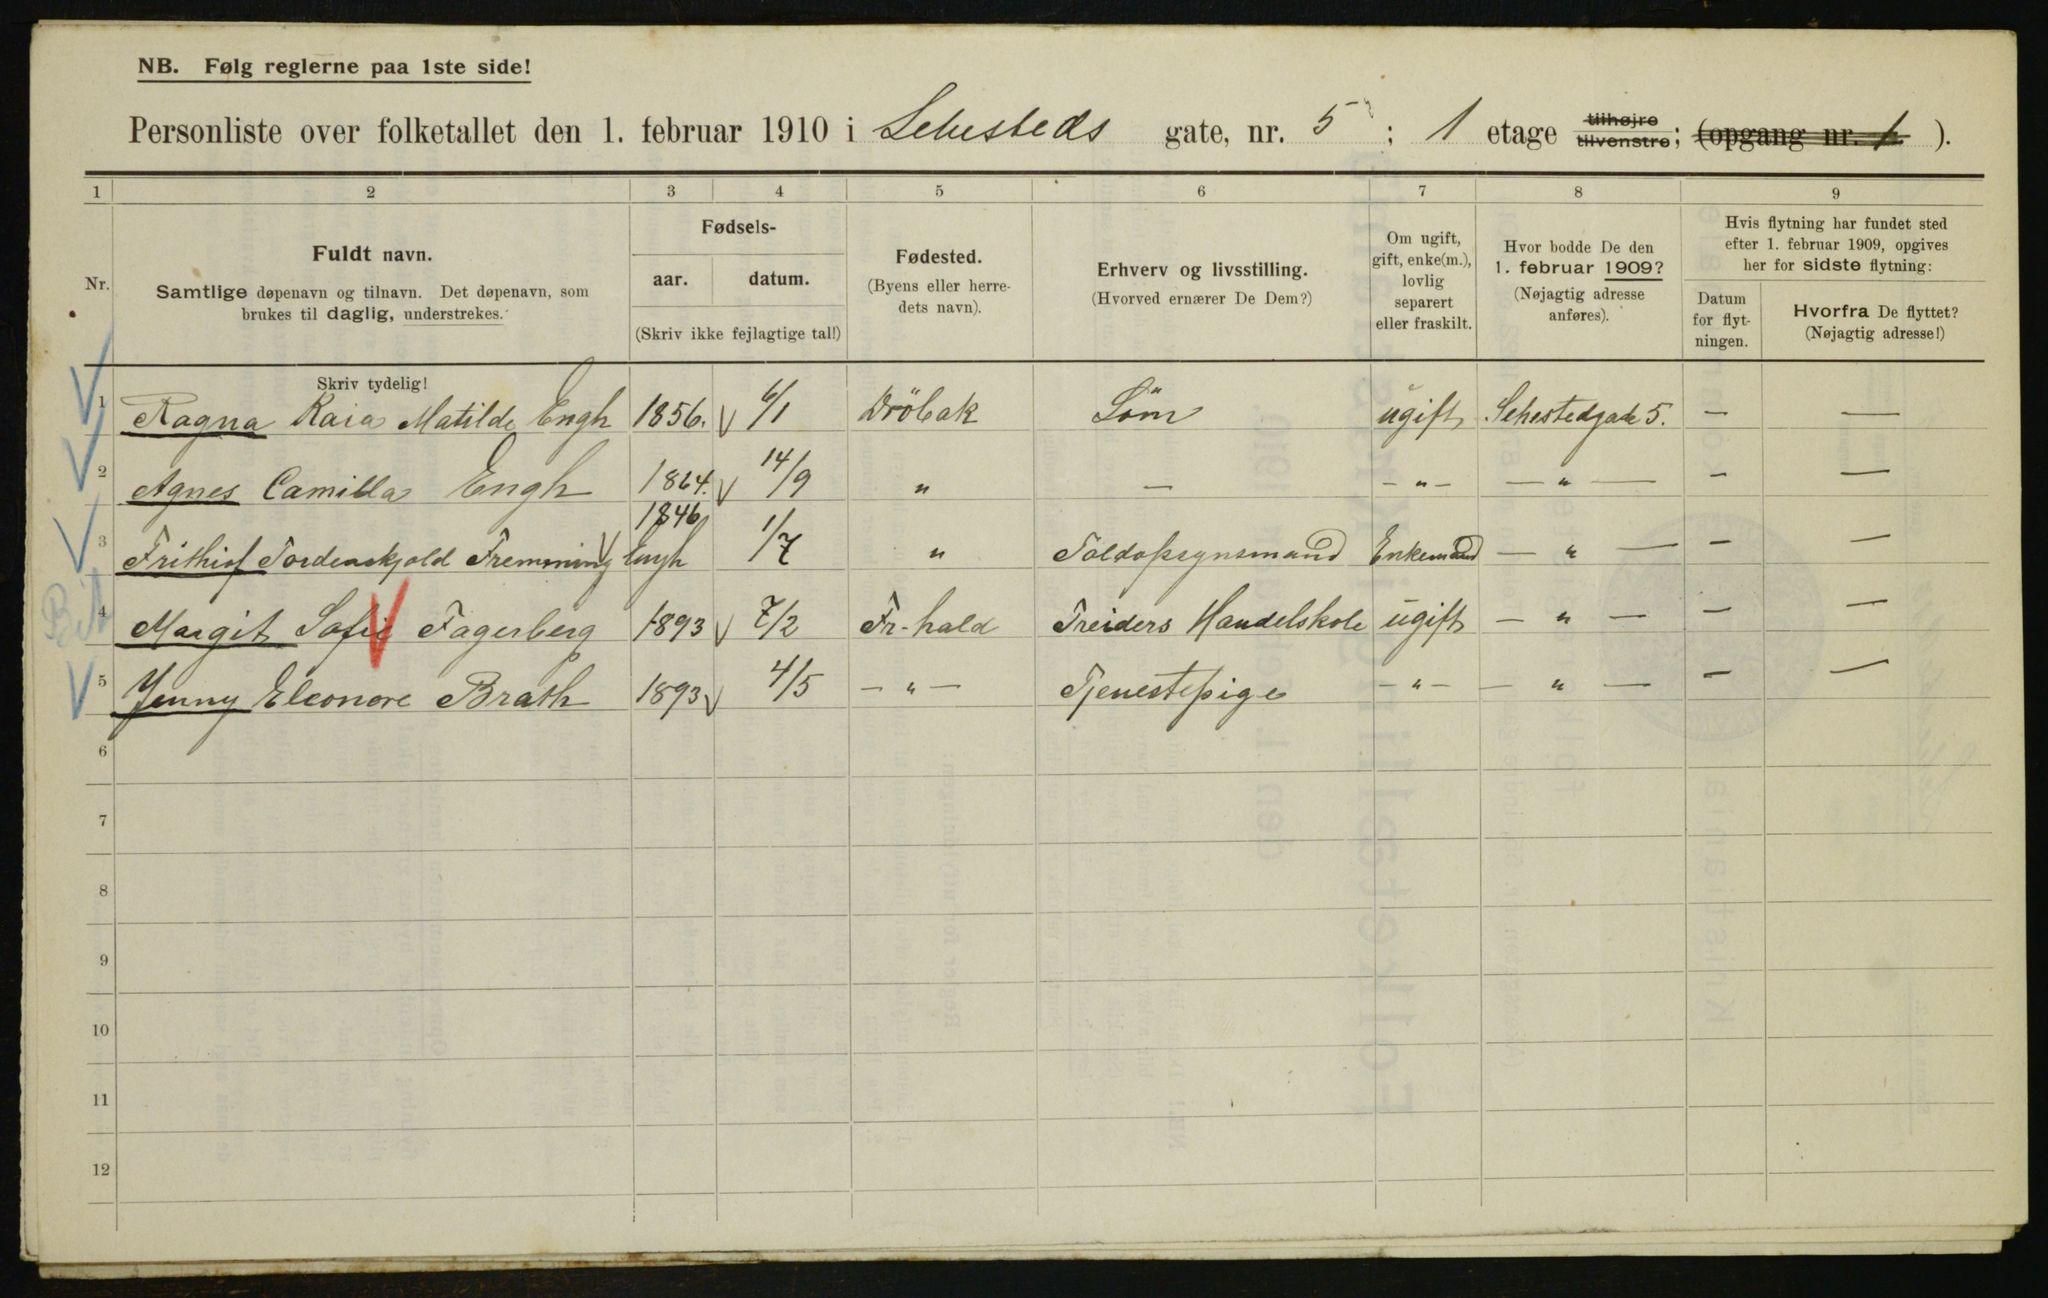 NB. Følg reglerne paa 1ste side!
Personliste over folketallet den 1. februar 1910 i Sehesteds gate, nr. 5; 1 etage tilhøjre tilvenstre; (opgang nr. 1).
1 2 3 4 5 6 7 8 9
Nr. Fuldt navn. Samtlige døpenavn og tilnavn. Det døpenavn, som brukes til daglig, understrekes. Fødsels- aar. datum. (Skriv ikke fejlagtige tal!) Fødested. (Byens eller herredets navn). Erhverv og livsstilling. (Hvorved ernærer De Dem?) Om ugift, gift, enke(m.), lovlig separert eller fraskilt. Hvor bodde De den 1. februar 1909? (Nøjagtig adresse anføres). Hvis flytning har fundet sted efter 1. februar 1909, opgives her for sidste flytning: Datum for flytningen. Hvorfra De flyttet? (Nøjagtig adresse!)
Skriv tydelig!
1 Ragna Kaia Matilde Engh 1856. 6/1 Dröbak Söm ugift Sehestedgade 5. — —
2 Agnes Camilla Engh 1864. 14/9 " — — " — — " — — —
3 Frithiof Tordenskjold Fremming Engh 1846 1/7 " Toldopsynsmand Enkemand — " — — —
Bit
4 Margit Sofie Fagerberg 1893 7/2 Fr-hald Treiders Handelskole ugift — " — — —
5 Jenny Eleonore Brath 1893 4/5 — " — Tjenestepige — " — — " — — —
6
7
8
9
10
11
12